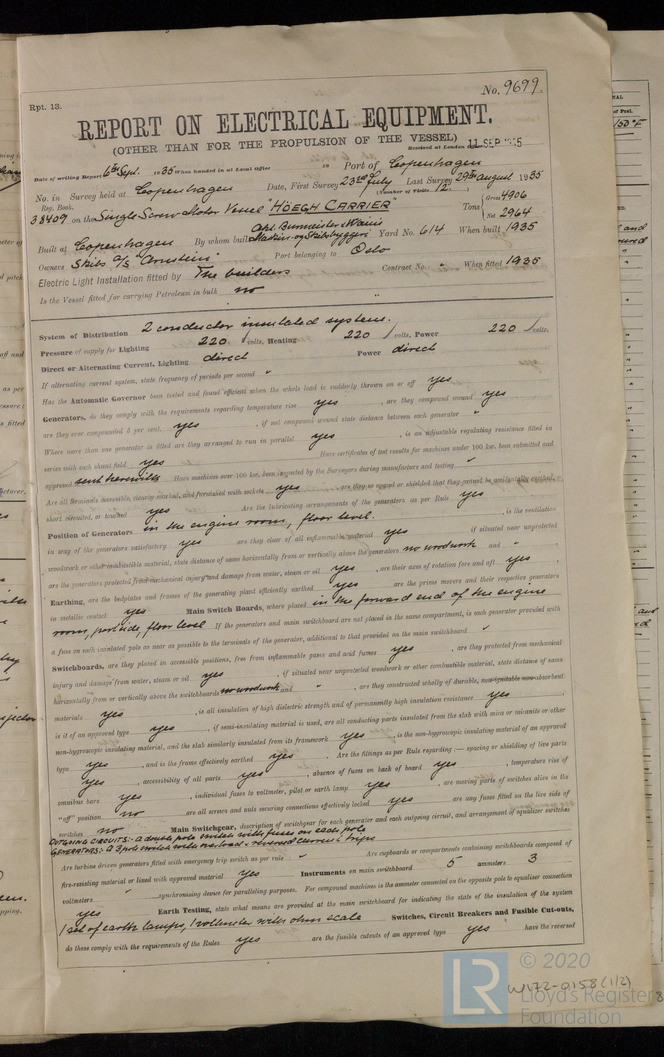 Rpt. 13.
No. 9699.
REPORT ON ELECTRICAL EQUIPMENT.
(OTHER THAN FOR THE PROPULSION OF THE VESSEL)
Received at London 11 SEP 1935
Date of writing Report 6th Sept. 1935 When handed in at Local Office Port of Copenhagen
No. in Survey held at Copenhagen Date, First Survey 23rd July Last Survey 29th August 1935
Reg. Book. (Number of Visits 12)
38409 on the Single Screw Motor Vessel "HÖEGH CARRIER" Tons Gross 4906
Net 2964
Built at Copenhagen By whom built Akt. Burmeister & Wain's Maskin- og Skibsbyggeri Yard No. 614 When built 1935
Owners Skibs A/S "Arnstein" Port belonging to Oslo
Electric Light Installation fitted by The builders Contract No. " When fitted 1935
Is the Vessel fitted for carrying Petroleum in bulk no
System of Distribution 2 conductor insulated system.
Pressure of supply for Lighting 220 volts, Heating 220 volts, Power 220 volts.
Direct or Alternating Current, Lighting direct Power direct
If alternating current system, state frequency of periods per second "
Has the Automatic Governor been tested and found efficient when the whole load is suddenly thrown on or off yes
Generators, do they comply with the requirements regarding temperature rise yes, are they compound wound yes
are they over compounded 5 per cent. yes, if not compound wound state distance between each generator "
Where more than one generator is fitted are they arranged to run in parallel yes, is an adjustable regulating resistance fitted in
series with each shunt field yes Have certificates of test results for machines under 100 kw. been submitted and
approved sent herewith Have machines over 100 kw. been inspected by the Surveyors during manufacture and testing "
Are all terminals accessible, clearly marked, and furnished with sockets yes, are they so spaced or shielded that they cannot be accidentally earthed,
short circuited, or touched yes Are the lubricating arrangements of the generators as per Rule yes
Position of Generators in the engine room, floor level. , is the ventilation
in way of the generators satisfactory yes are they clear of all inflammable material yes if situated near unprotected
woodwork or other combustible material, state distance of same horizontally from or vertically above the generators no woodwork and "
are the generators protected from mechanical injury and damage from water, steam or oil yes, are their axes of rotation fore and aft yes
Earthing, are the bedplates and frames of the generating plant efficiently earthed yes are the prime movers and their respective generators
in metallic contact yes Main Switch Boards, where placed in the forward end of the engine
room, portside, floor level If the generators and main switchboard are not placed in the same compartment, is each generator provided with
a fuse on each insulated pole as near as possible to the terminals of the generator, additional to that provided on the main switchboard "
Switchboards, are they placed in accessible positions, free from inflammable gases and acid fumes yes, are they protected from mechanical
injury and damage from water, steam or oil yes, if situated near unprotected woodwork or other combustible material, state distance of same
horizontally from or vertically above the switchboards no woodwork and ", are they constructed wholly of durable, non-ignitable non-absorbent
materials yes, is all insulation of high dielectric strength and of permanently high insulation resistance yes
is it of an approved type yes, if semi-insulating material is used, are all conducting parts insulated from the slab with mica or micanite or other
non-hygroscopic insulating material, and the slab similarly insulated from its framework yes, is the non-hygroscopic insulating material of an approved
type yes, and is the frame effectively earthed yes. Are the fittings as per Rule regarding:— spacing or shielding of live parts
yes, accessibility of all parts yes, absence of fuses on back of board yes, temperature rise of
omnibus bars yes, individual fuses to voltmeter, pilot or earth lamp yes, are moving parts of switches alive in the
"off" position no are all screws and nuts securing connections effectively locked yes are any fuses fitted on the live side of
switches no Main Switchgear, description of switchgear for each generator and each outgoing circuit, and arrangement of equaliser switches
OUTGOING CIRCUITS:- A double pole switch with fuses on each pole
GENERATORS:- A 3 pole switch with overload & reversed current trips
Are turbine driven generators fitted with emergency trip switch as per rule " Are cupboards or compartments containing switchboards composed of
fire-resisting material or lined with approved material yes Instruments on main switchboard 5 ammeters 3
voltmeters " synchronising device for paralleling purposes. For compound machines is the ammeter connected on the opposite pole to equaliser connection
yes Earth Testing, state what means are provided at the main switchboard for indicating the state of the insulation of the system
1 set of earth lamps, 1 voltmeter with ohm scale Switches, Circuit Breakers and Fusible Cut-outs,
do these comply with the requirements of the Rules yes are the fusible cutouts of an approved type yes have the reversed
© 2020
LR Lloyd's Register
Foundation
W172-0158 (1/2)